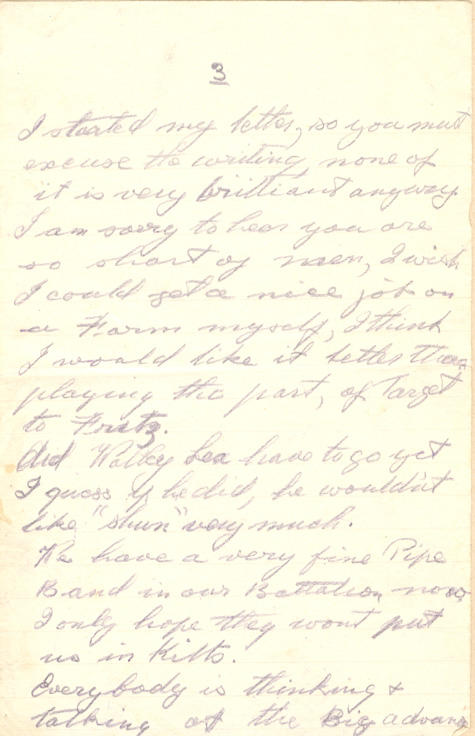 3
I started my letter, so you must
excuse the writing, none of
it is very brilliant anyway.
I am sorry to hear you are
so short of men, I wish
I could get a nice job on
a Farm myself, I think
I would like it better than
playing the part, of Target
to Fritz.
Did Walley Lea have to go yet
I guess if he did, he wouldn't
like "shun" very much.
We have a very fine Pipe
Band in our Battalion now,
I only hope they wont put
us in Kilts.
Everybody is thinking &
talking of the Big advance